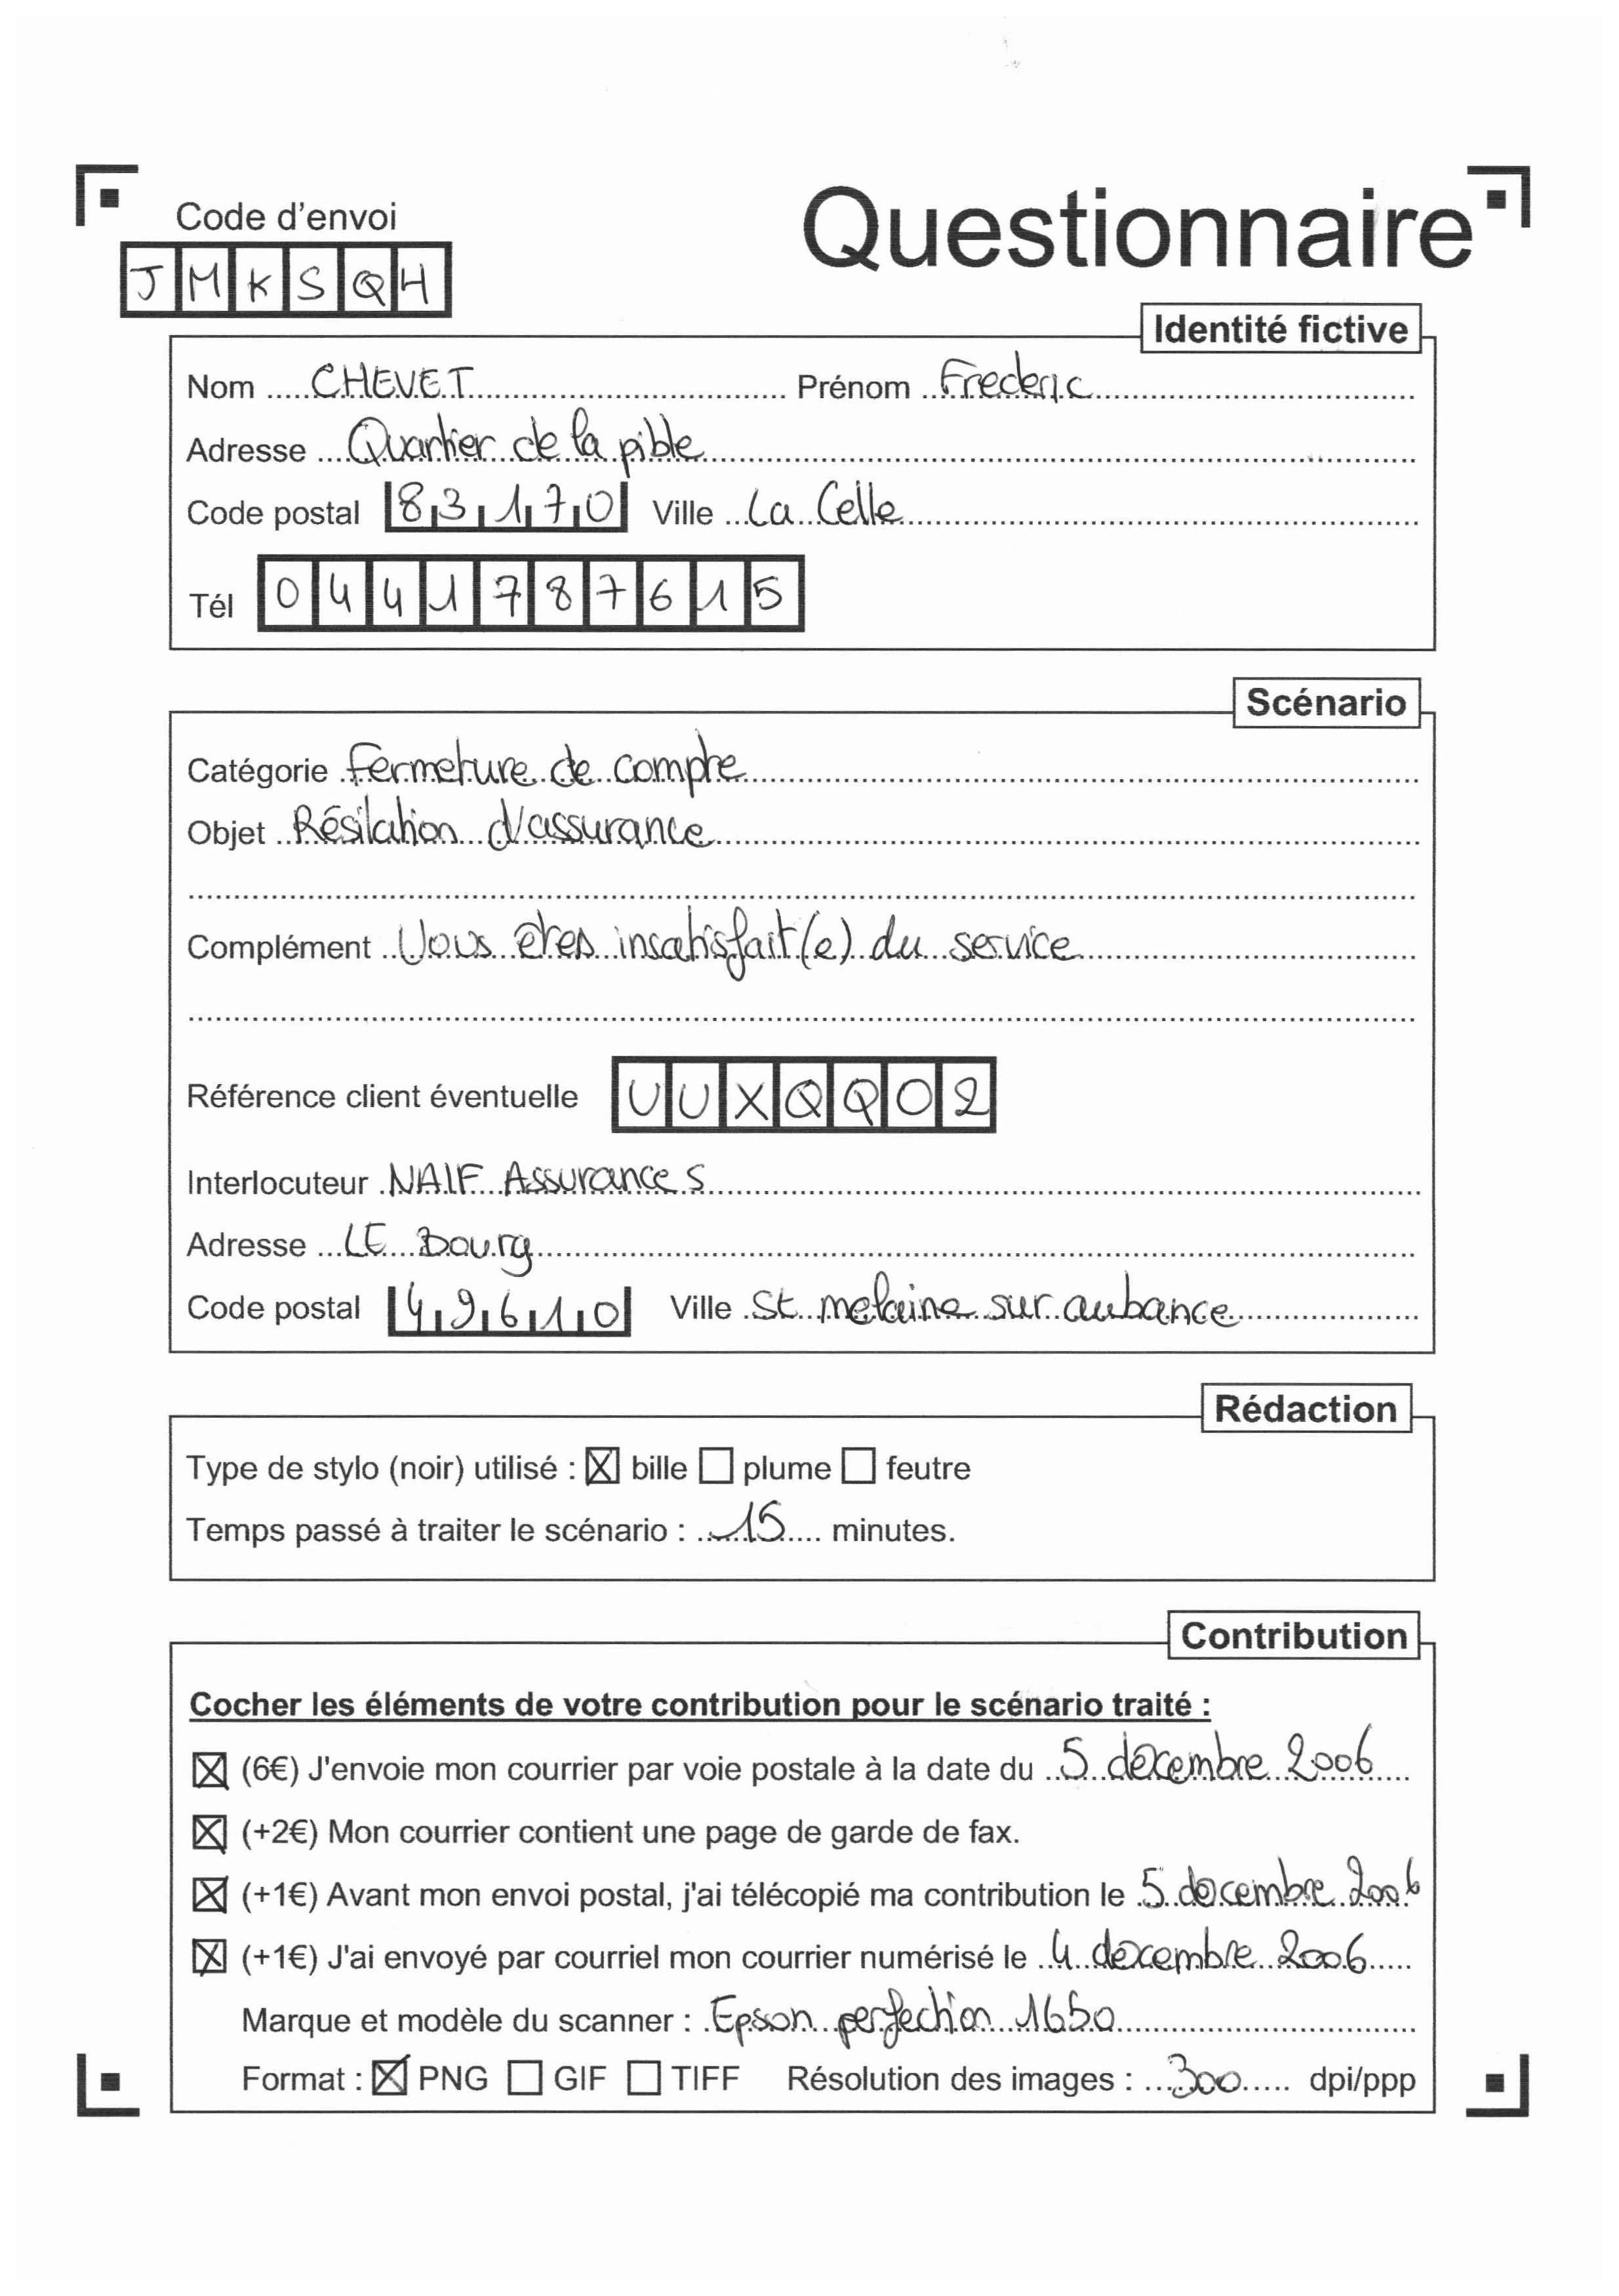 Code d'envoi
Questionnaire
JMKSQH
Identité fictive
Nom CHEVET Prénom Frederic
Adresse Quartier de la pible
Code postal 83170 Ville La Celle
Tél 0441787615
Scénario
Catégorie Fermeture de compte
Objet Résilation d'assurance
Complément Vous êtes insatisfait(e) du service
Référence client éventuelle UUXQQO2
Interlocuteur NAIF Assurances
Adresse LE Bourg
Code postal 49610 Ville St melaine sur aubance
Rédaction
Type de stylo (noir) utilisé : ☒ bille ☐ plume ☐ feutre
Temps passé à traiter le scénario : 15 minutes.
Contribution
Cocher les éléments de votre contribution pour le scénario traité :
☒ (6€) J'envoie mon courrier par voie postale à la date du 5 decembre 2006
☒ (+2€) Mon courrier contient une page de garde de fax.
☒ (+1€) Avant mon envoi postal, j'ai télécopié ma contribution le 5 decembre 2006
☒ (+1€) J'ai envoyé par courriel mon courrier numérisé le 4 decembre 2006
Marque et modèle du scanner : Epson perfection 1650
Format : ☒ PNG ☐ GIF ☐ TIFF Résolution des images : 300 dpi/ppp